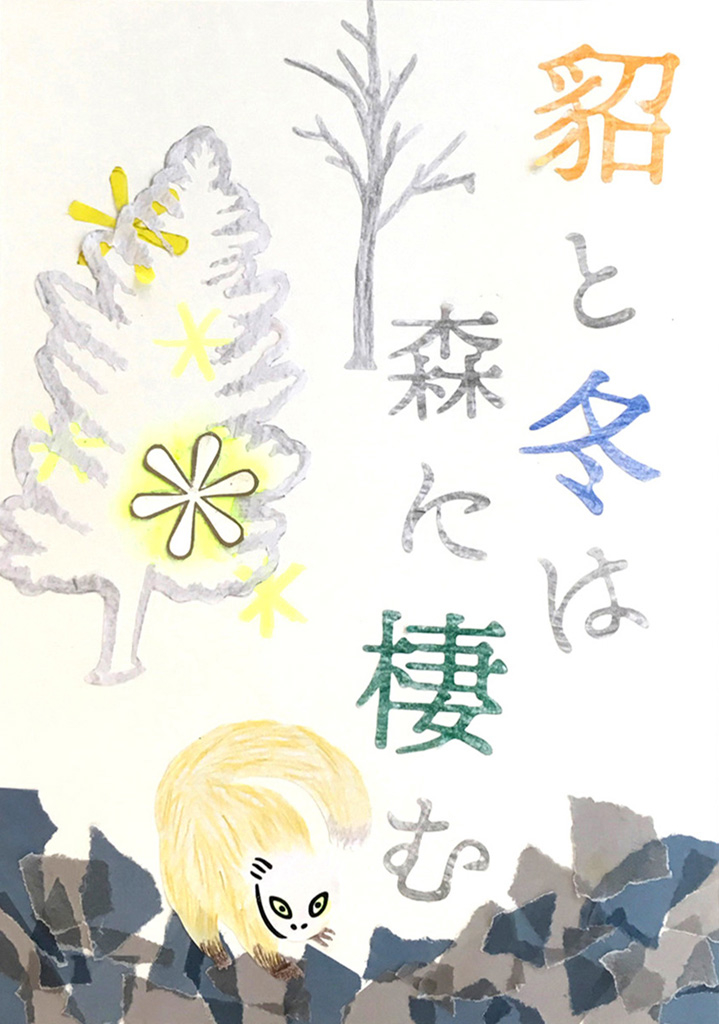 貂と冬は
森に棲む